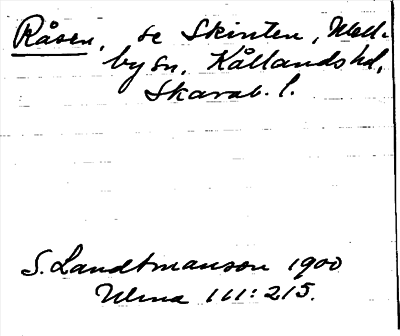 Råsen, se Skinten, Mell-
by sn, Kållands hd,
Skarab. l.
S. Landtmanson 1900
Ulma 111:215.